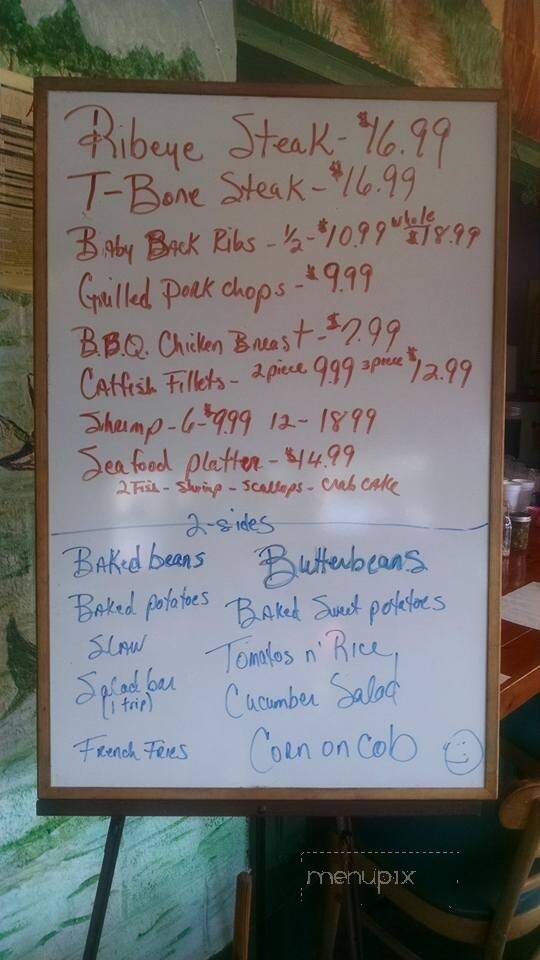 Ribeye Steak - $16.99
T-Bone Steak - $16.99
Baby Back Ribs - 1/2 - $10.99 whole $18.99
Grilled Pork chops - $9.99
B.B.Q. Chicken Breast - $7.99
Catfish Fillets - 2 piece 999 3 piece $12.99
Shrimp - 6 - $999 12 - 1899
Seafood platter - $14.99
2 Fish - Shrimp - Scallops - Crab Cake
2-sides
Baked beans Butterbeans
Baked potatoes Baked Sweet potatoes
Slaw Tomatos n' Rice
Salad bar (1 trip) Cucumber Salad
French Fries Corn on Cob
menupix